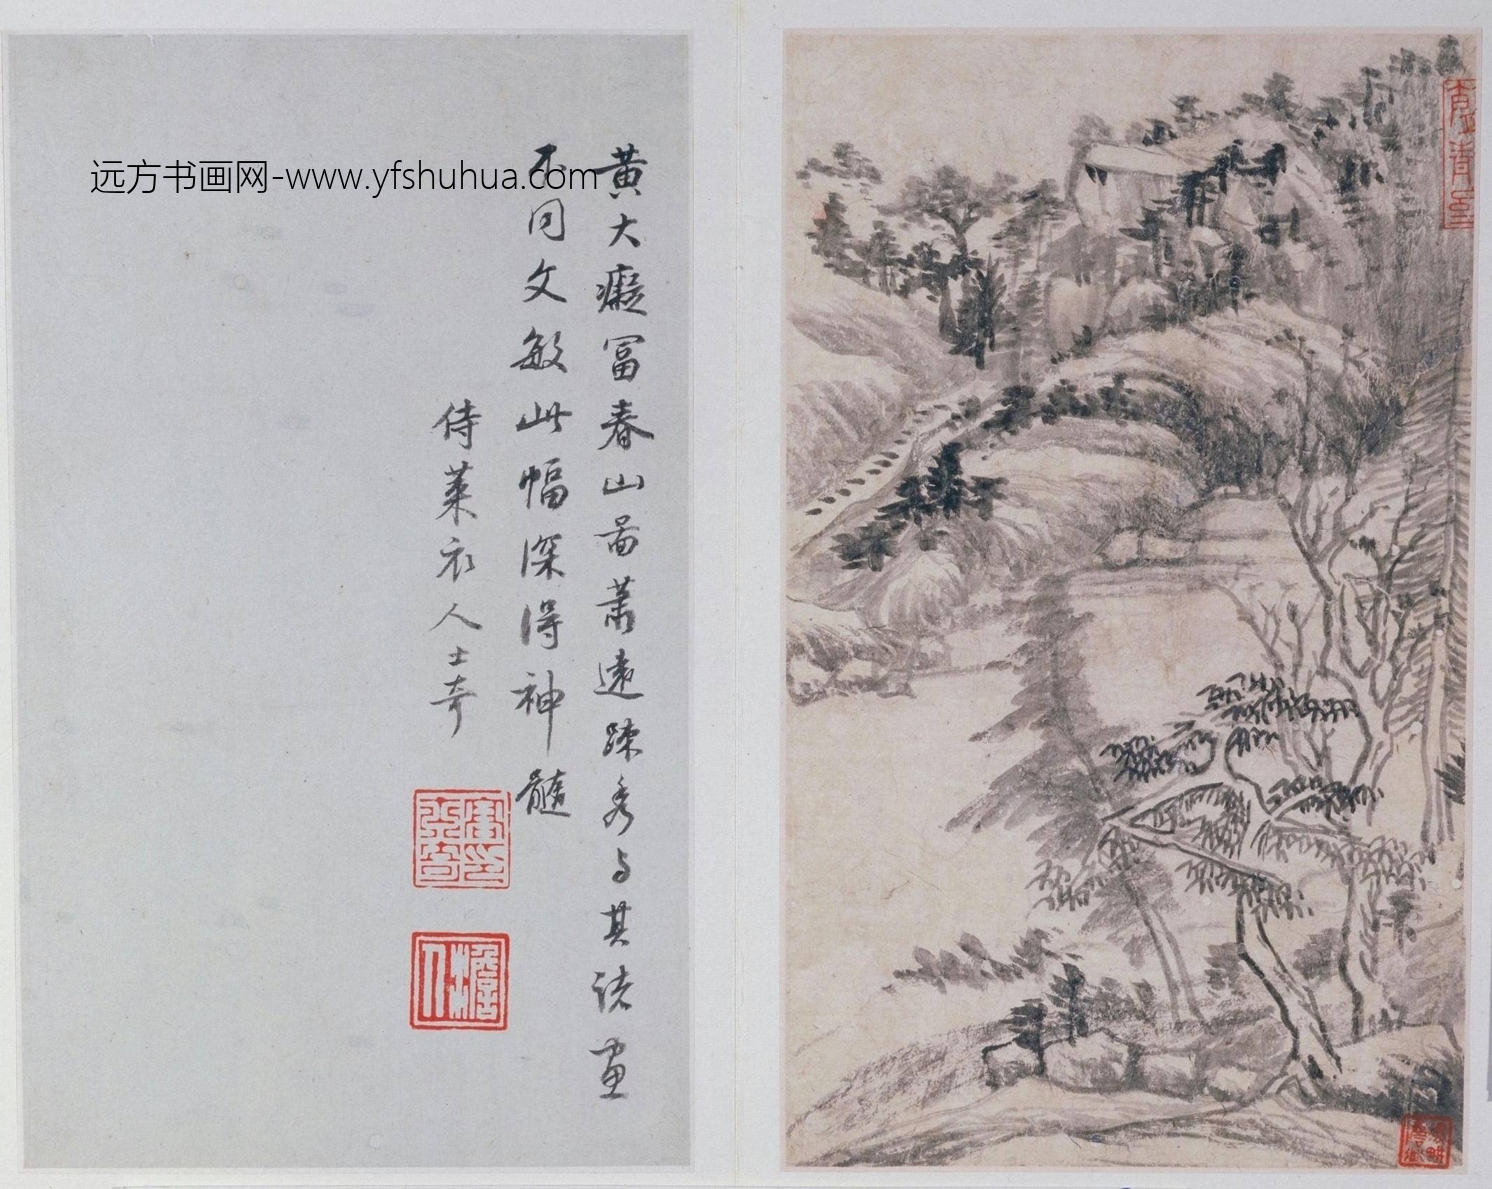 远方书画网-www.yfshuhua.com
黄大癡冨春山啚蕭遠踈秀与其諸畫
不同文敏此幅深得神髓
侍萊衣人士奇